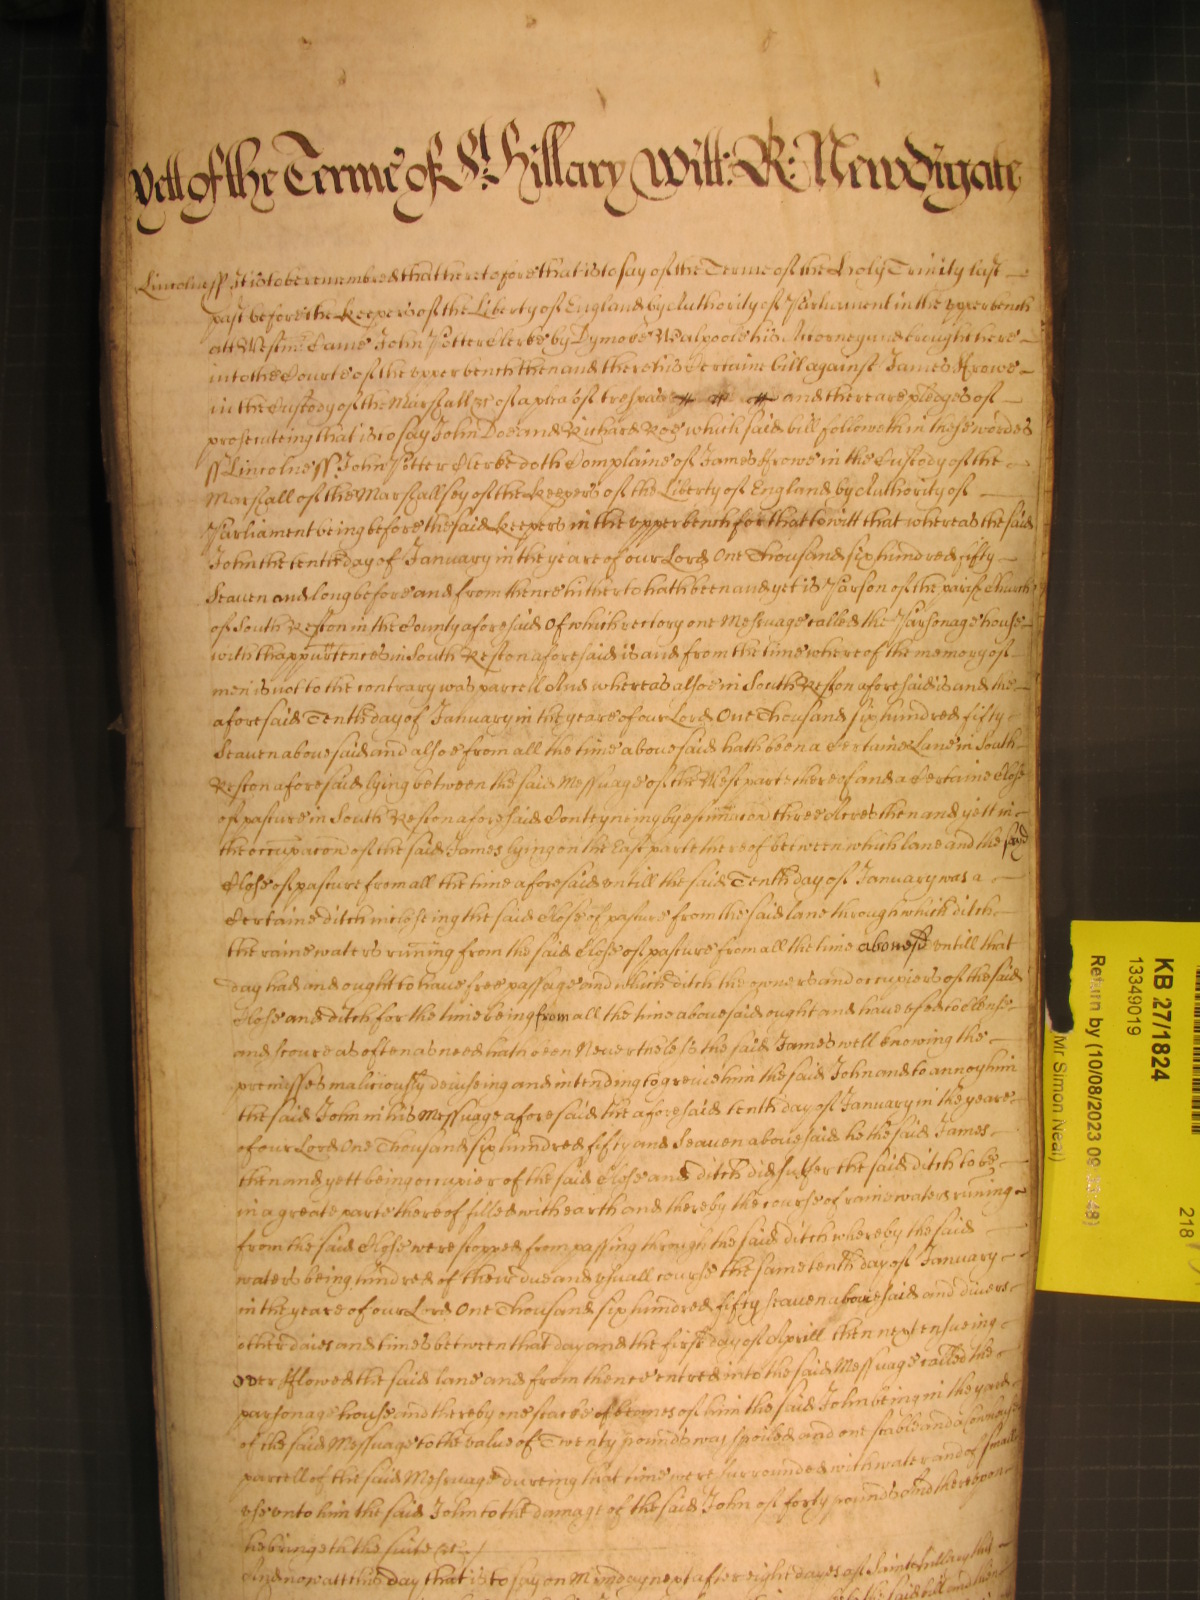 yett of the Terme of St Hillary Witt: R: Newdigate
Lincolne ss It is to be remembred that heretofore that is to say of the Terme of the Holy Trinity last
past before the Keepers of the Liberty of England by Authority of Parliament in the upper bench
att Westmr: Came John Potter Clerke by Dymoke Walpoole his Attorney and brought here
into the Courte of the upper bench then and there his Certaine bill against James Browe
in the Custody of the Marshall &c of a plea of trespas and there are pledges of
prosecuteing that is to say John Doe and Richard Roe which said bill followeth in these wordes
ss Lincolne ss John Potter Clerke doth Complaine of James Browe in the Custody of the
Marshall of the Marshallsey of the Keepers of the Liberty of England by Authority of
Parliament being before the said Keepers in the upper bench for that to witt that whereas the said
John the tenth day of January in the yeare of our Lord One Thousand six hundred fifty
Seaven and long before and from thence hitherto hath been and yet is Parson of the parish Church
of South Reston in the County aforesaid Of which rectory one Messuage called the Parsonage house
with thappurtences in South Reston aforesaid is and from the time whereof the memory of
men is not to the contrary was parcell And whereas alsoe in South Reston aforesaid is and the
aforesaid Tenth day of January in the yeare of our Lord One Thousand six hundred fifty
Seaven abovesaid and alsoe from all the time abovesaid hath been a Certaine Lane in South
Reston aforesaid lying between the said Messuage of the West parte thereof and a Certaine Close
of pasture in South Reston aforesaid Conteyneing by estimacon three Acres then and yett in
the occupacon of the said James lying on the East parte thereof between which lane and the said
Close of pasture from all the time aforesaid untill the said Tenth day of January was a
Certaine ditch incloseing the said Close of pasture from the said lane through which ditch
the raine waters runing from the said Close of pasture from all the time abovesd untill that
day had and ought to have free passage and which ditch the owners and occupiers of the said
Close and ditch for the time being from all the time abovesaid ought and have used to clense
and scoure as often as need hath been Nevertheless the said James well knowing the
premisses maliciously deviseing and intending to greive him the said John and to annoy him
the said John in his Messuage aforesaid the aforesaid tenth day of January in the yeare
of our Lord One Thousand six hundred fifty and Seaven abovesaid he the said James
then and yett being occupier of the said Close and ditch did suffer the said ditch to be
in a greate parte thereof filled with earth and thereby the course of raine waters runing
from the said Close were stopped from passing through the said ditch whereby the said
waters being hindred of their due and usuall course the same tenth day of January
in the yeare of our Lord One Thousand six hundred fifty seaven abovesaid and divers
other daies and times between that day and the first day of Aprill then next ensueing
overflowed the said lane and from thence entred into the said Messuage called the
parsonage house and thereby one stacke of of him the said John being in the yard
of the said Messuage to the value of Twenty pounds was spoiled and one stable and
parcell of the said Messuage dureing that time were surrounded with water and of small
use unto him the said John to the damage of the said John of forty pounds And thereupon
he bringeth the suite &c
And now att this day that is to say on Munday next after eight dayes of Saint Hillary this
the said bill and then
KB 27/1824
13349019
Return by (10/08/2023 09
(Mr Simon Neal)
218